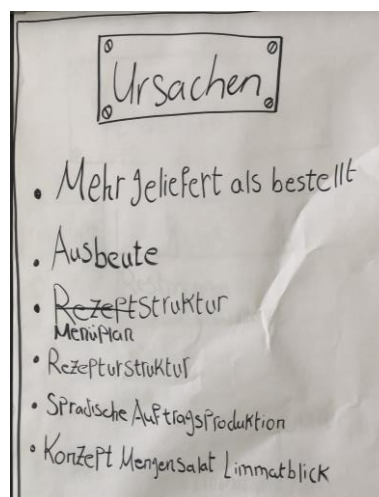 Ursachen
• Mehr geliefert als bestellt
• Ausbeute
• Rezeptstruktur
Menüplan
• Rezepturstruktur
• Spradische Auftragsproduktion
• Konzept Mengensalat Limmatblick